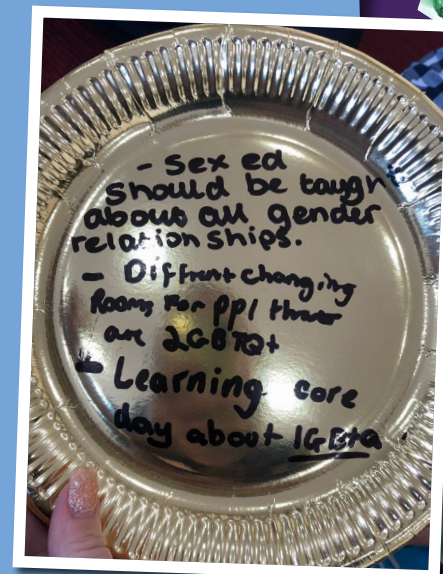 - Sex ed
should be taught
about all gender
relationships.
- Diffrent changing
Rooms for ppl that
are LGBTQ+
- Learning core
day about lGBtQ.